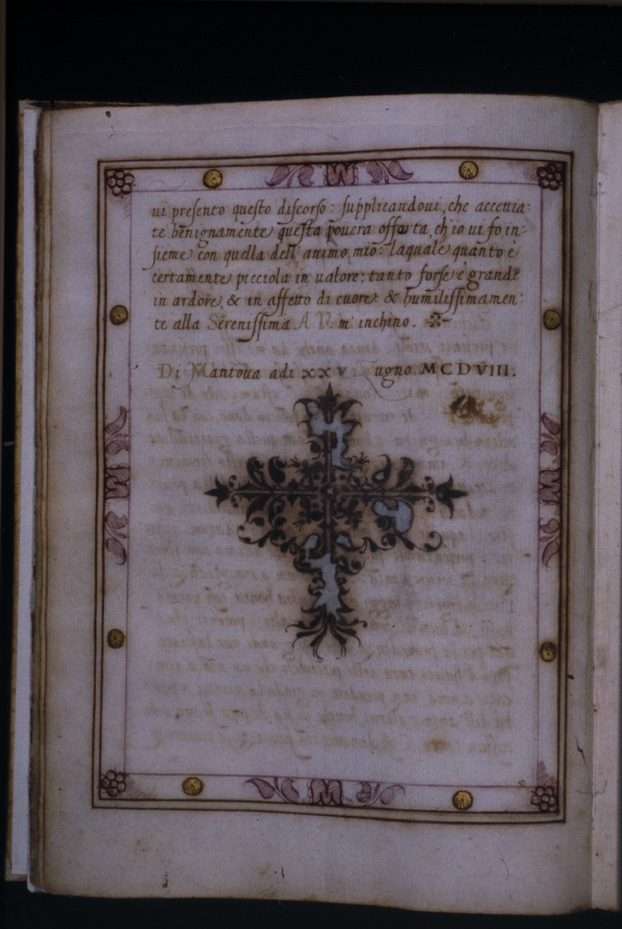 vi presento questo discorso: supplicandoui, che accettia:
te benignamente questa pouera offerta, ch'io ui fo in:
sieme con quella dell'animo mio: laquale quanto è
certamente picciola in ualore; tanto forse è grande
in ardore, & in affetto di cuore: & humilissimamen:
te alla Serenissima A V. m' inchino.
Di Mantoua adi XXV ugno. MCDVIII.